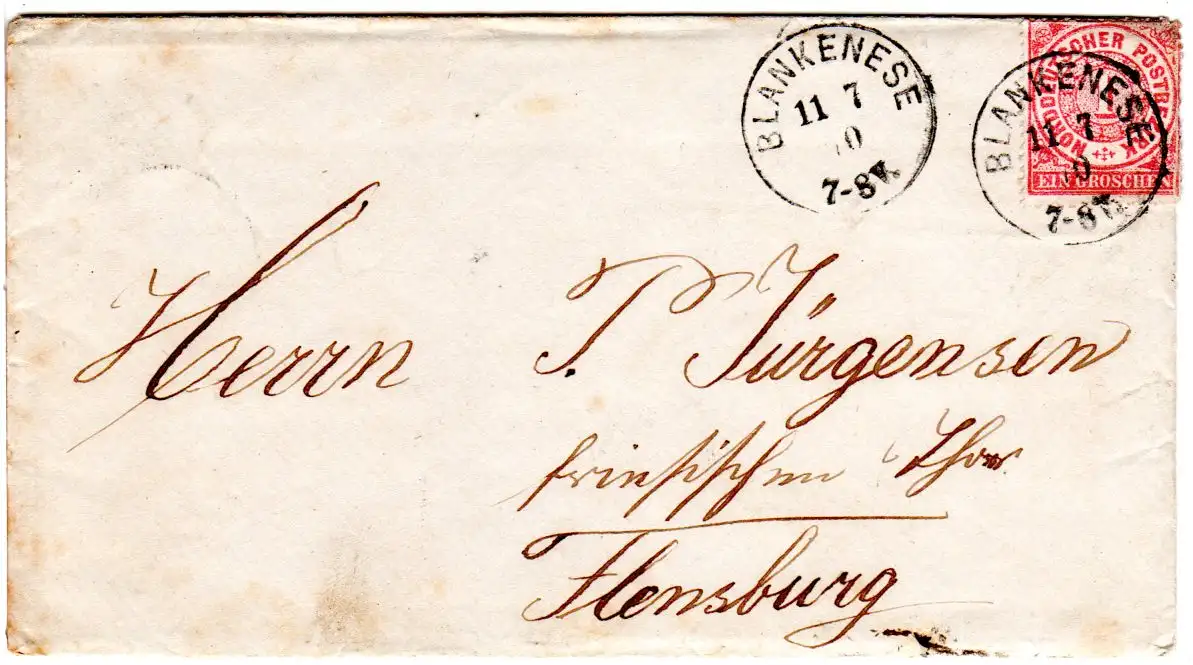 BLANKENESE
11 7
7-8 V.
NORDDEUTSCHER POSTBEZIRK
1
EIN GROSCHEN
BLANKENESE
11 7
7-8 V.
Herrn P. Jürgensen
friesischen Thor
Flensburg